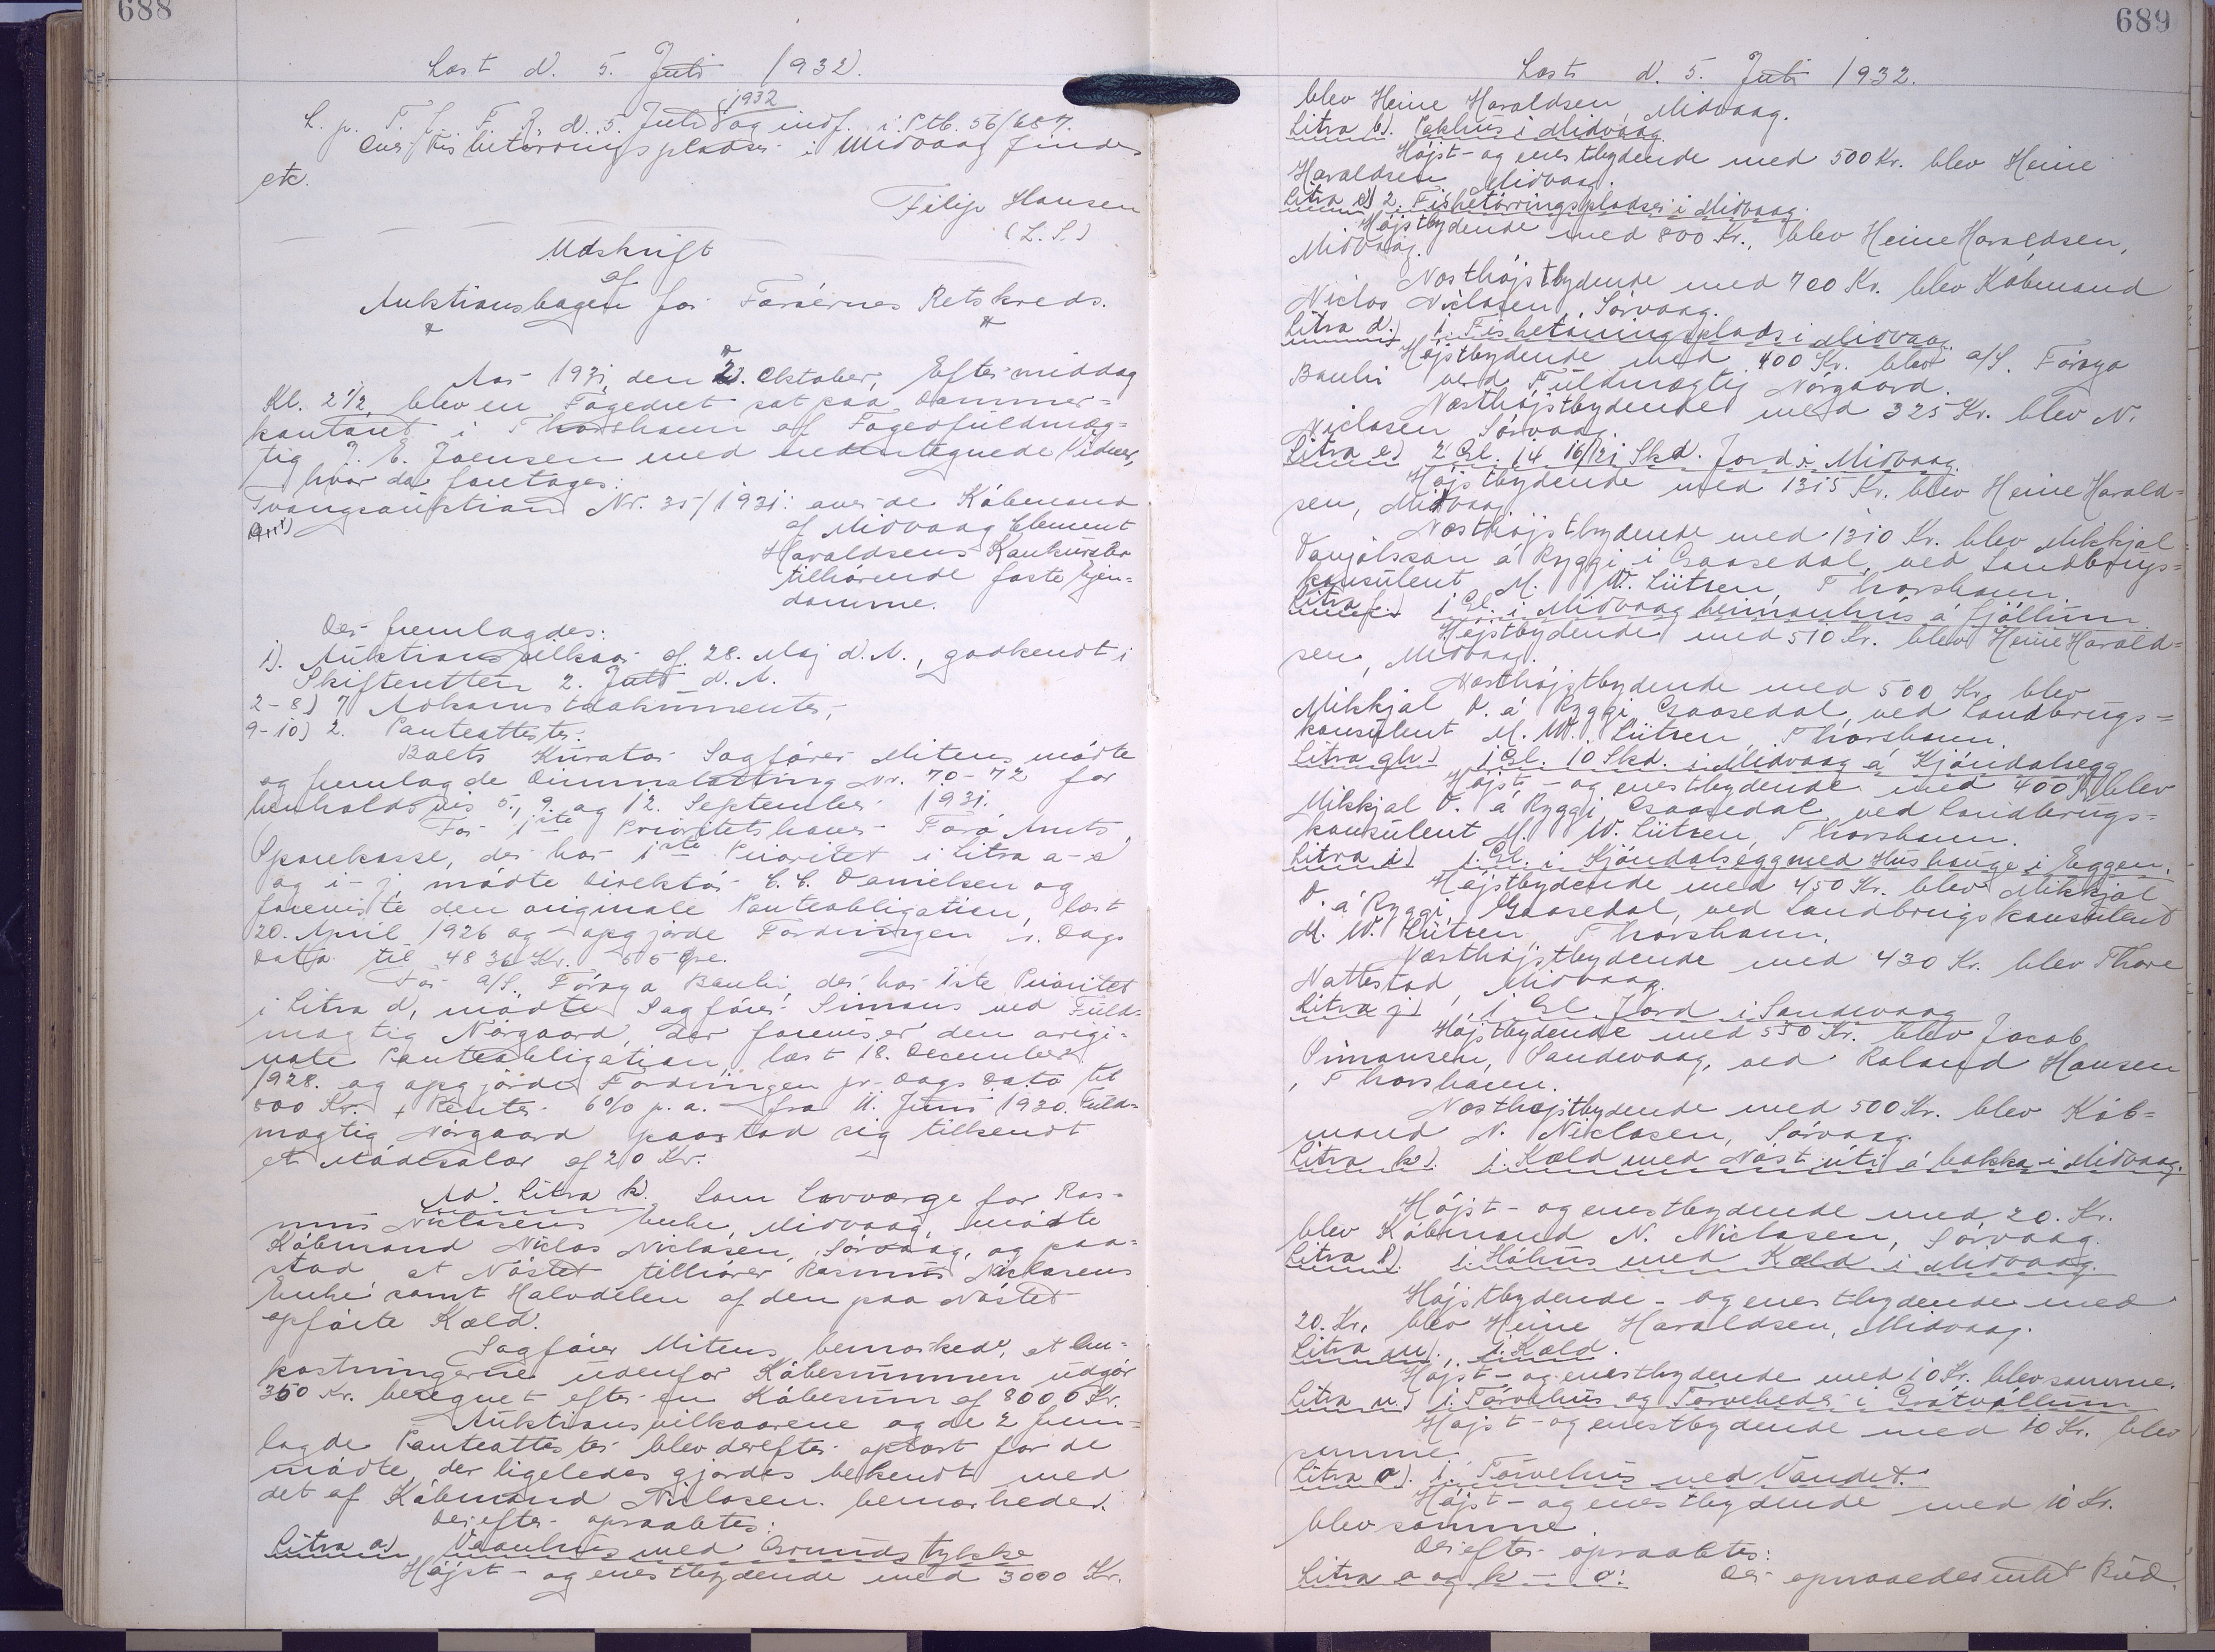 688
Læst d. 5. Juli 1932.
L. p. T. f. F. R. d. 5. Juli 1932 og indf. i Ptb. 56/687.
Fisketørringspladser i Midvaag findes
etc.
Filip Hansen
(L.S.)
Udskrift
af
Auktionsbogen for Færøernes Retskreds.
Aar 1931, den 2. Oktober, Eftermiddag
Kl. 2 1/2, blev en Fogedret sat paa Dommer=
kontoret i Thorshavn af Fogedfuldmæg=
tig J. E. Joensen med undertegnede Vidner,
hvor da foretages:
Tvangsauktion Nr. 35/1931: over de Købmand
af Midvaag Clement
Haraldsens Konkursbo
tilhørende faste Ejen=
domme.
Der fremlagdes:
1). Auktionsvilkaar af 28. Maj d.A., godkendt i
Skifteretten 2. Juli d.A.
2-8) 7 Adkomstdokumenter,
9-10) 2 Panteattester.
Boets Kurator Sagfører Mitens mødte
og fremlagde Dimmalætting Nr. 70-72 for
henholdsvis 5., 9. og 12. September 1931.
For 1ste Prioritetshaver Færø Amts
Sparekasse, der har 1ste Prioritet i Litra a-c
og i-j, mødte Direktør C. C. Danielsen og
foreviste den originale Panteobligation, læst
20. April 1926 og opgjorde Fordringen pr. Dags
Dato til 4836 Kr. 55 Øre.
For A/S. Føroya Banki, der har 1ste Prioritet
i Litra d, mødte Sagfører Simons ved Fuld=
mægtig Nørgaard, der foreviser den origi=
nale Panteobligation, læst 18. December
1928. og opgjorde Fordringen pr. Dags Dato til
800 Kr. + Renter 6% p.a. fra 11. Juni 1930. Fuld=
mægtig Nørgaard paastod sig tilkendt
et Mødesalær af 20 Kr.
Ad. Litra k. Som Lavværge for Ras=
mus Niclasens Enke, Midvaag, mødte
Købmand Niclas Niclasen, Sørvaag, og paa=
stod at Nøstet tilhører Rasmus Niclasens
Enke samt Halvdelen af den paa Nøstet
opførte Kæld.
Sagfører Mitens bemærkede, at Om=
kostningerne udenfor Købesummen udgør
350 Kr. beregnet efter en Købesum af 8000 Kr.
Auktionsvilkaarene og de 2 frem=
lagde Panteattester blev derefter oplæst for de
mødte, der ligeledes gjordes bekendt med
det af Købmand Niclasen bemærkede.
Derefter opraabtes:
Litra a) Vaanhus med Grundstykke
Højst- og enestbydende med 3000 Kr.
689
Læst d. 5. Juli 1932.
blev Heine Haraldsen, Midvaag.
Litra b). Pakhus i Midvaag.
Højst- og enestbydende med 500 Kr. blev Heine
Haraldsen Midvaag.
Litra c) 2. Fisketørringspladser i Midvaag.
Højstbydende med 800 Kr., blev Heine Haraldsen,
Midvaag.
Næsthøjstbydende med 700 Kr. blev Købmand
Niclas Niclasen, Sørvaag.
Litra d.) 1. Fisketørringsplads i Midvaag
Højstbydende med 400 Kr. blev A/S. Føroya
Banki ved Fuldmægtig Nørgaard.
Næsthøjstbydende med 325 Kr. blev N.
Niclasen Sørvaag.
Litra e) 2 Gl. 14 16/121 Skd. Jord i Midvaag.
Højstbydende med 1315 Kr. blev Heine Harald=
sen, Midvaag
Næsthøjstbydende med 1310 Kr. blev Mikkjal
á Ryggi i Gaasedal, ved Landbrugs=
konsulent M. W. Lützen, Thorshavn.
Litra f.) 1 Gl. i Midvaag heimanhús á fjøllum
Højstbydende med 510 Kr. blev Heine Harald=
sen, Midvaag.
Næsthøjstbydende med 500 Kr. blev
Mikkjal D. á Ryggi Gaasedal, ved Landbrugs=
konsulent M. W. Lützen, Thorshavn.
Litra gh.) 1 Gl. 10 Skd. i Midvaag á Kjóndalsegg
Højst- og enestbydende med 400 Kr. blev
Mikkjal D. á Ryggi Gaasedal ved Landbrugs=
konsulent M. W. Lützen, Thorshavn.
Litra i) 1. Gl. i Kjóndalsegg med Hushauge i Eggen.
Højstbydende med 450 Kr. blev Mikkjal
D. á Ryggi, Gaasedal, ved Landbrugskonsulent
M. W. Lützen Thorshavn.
Næsthøjstbydende med 430 Kr. blev Thore
Nattestad, Midvaag.
Litra j) 1 Gl. Jord i Sandevaag
Højstbydende med 550 Kr. blev Jacob
Simonsen, Sandevaag, ved Roland Hansen
, Thorshavn.
Næsthøjstbydende med 500 Kr. blev Køb=
mand N. Niclasen, Sørvaag.
Litra k). 1. Kæld med Nøst úti á bakka i Midvaag.
Højst- og enestbydende med 20. Kr.
blev Købmand N. Niclasen, Sørvaag.
Litra l). 1. Hóhus med Kæld i Midvaag.
Højstbydende- og enestbydende med
20. Kr. blev Heine Haraldsen, Midvaag.
Litra m). 1. Kæld.
Højst- og enestbydende med 10 Kr. blev samme.
Litra n.) 1. Tørvehus og Tørvehede i Grátvøllum
Højst- og enestbydende med 10 Kr. blev
samme.
Litra o). 1. Tørvehus ved Vandet.
Højst- og enestbydende med 10 Kr.
blev samme.
Derefter opraabtes:
Litra a og k - o: Der opnaaedes intet Bud.